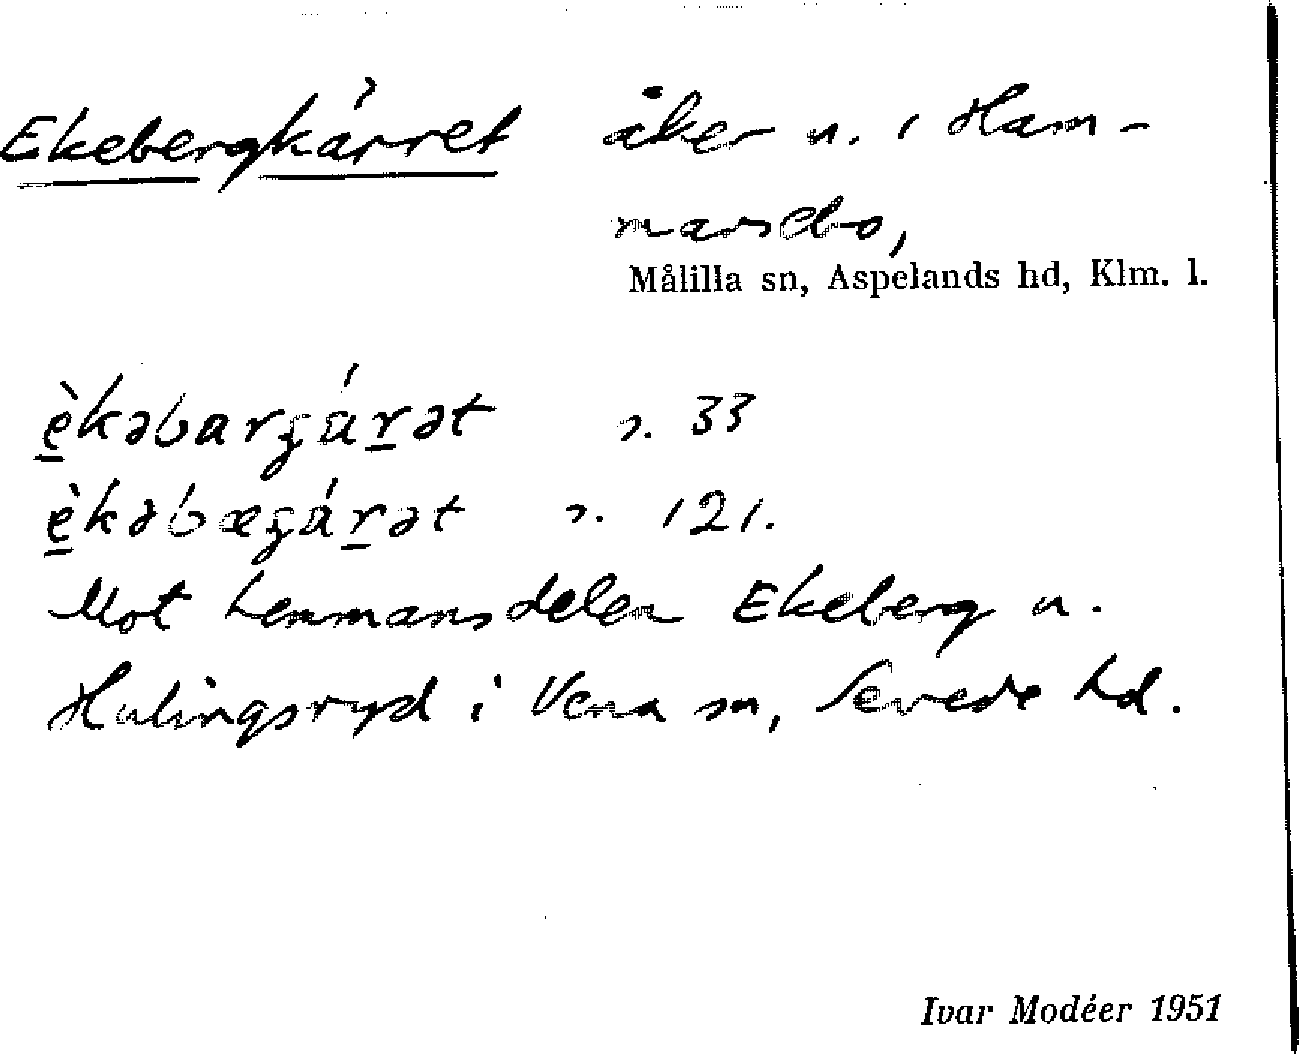 Ekebergkärret åker n. i Ham-
marsebo,
Målilla sn, Aspelands hd, Klm. l.
è̱kəbargár̠ət s. 33
è̱kəbægár̠ət s. 121.
Mot hemmansdelen Ekeberg u.
Hulingsryd i Vena sn, Sevede hd.
Ivar Modéer 1951